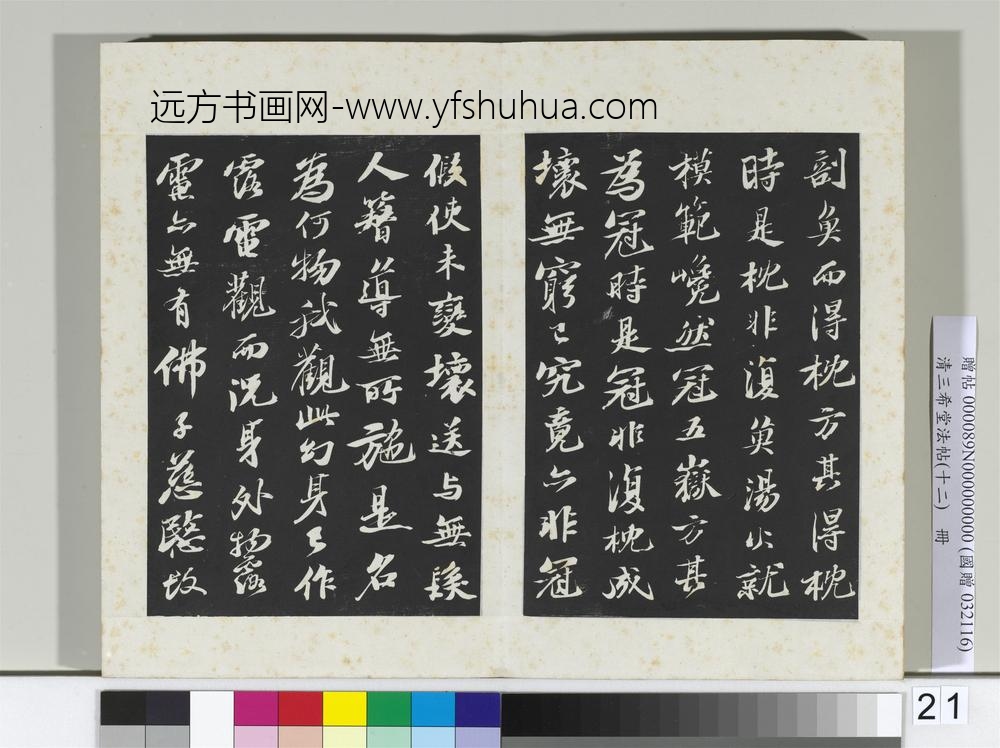 远方书画网-www.yfshuhua.com
剖魚而得枕方其得枕
時是枕非復魚湯火就
模範巉然冠五嶽方其
為冠時是冠非復枕成
壞無窮已究竟亦非冠
假使未變壞送与無髮
人簪導無所施是名
為何物我觀此幻身已作
露電觀而況身外物露
電亦無有佛子慈愍故
贈帖 0000089N000000000 (國贈 032116)
清三希堂法帖(十二) 冊
21